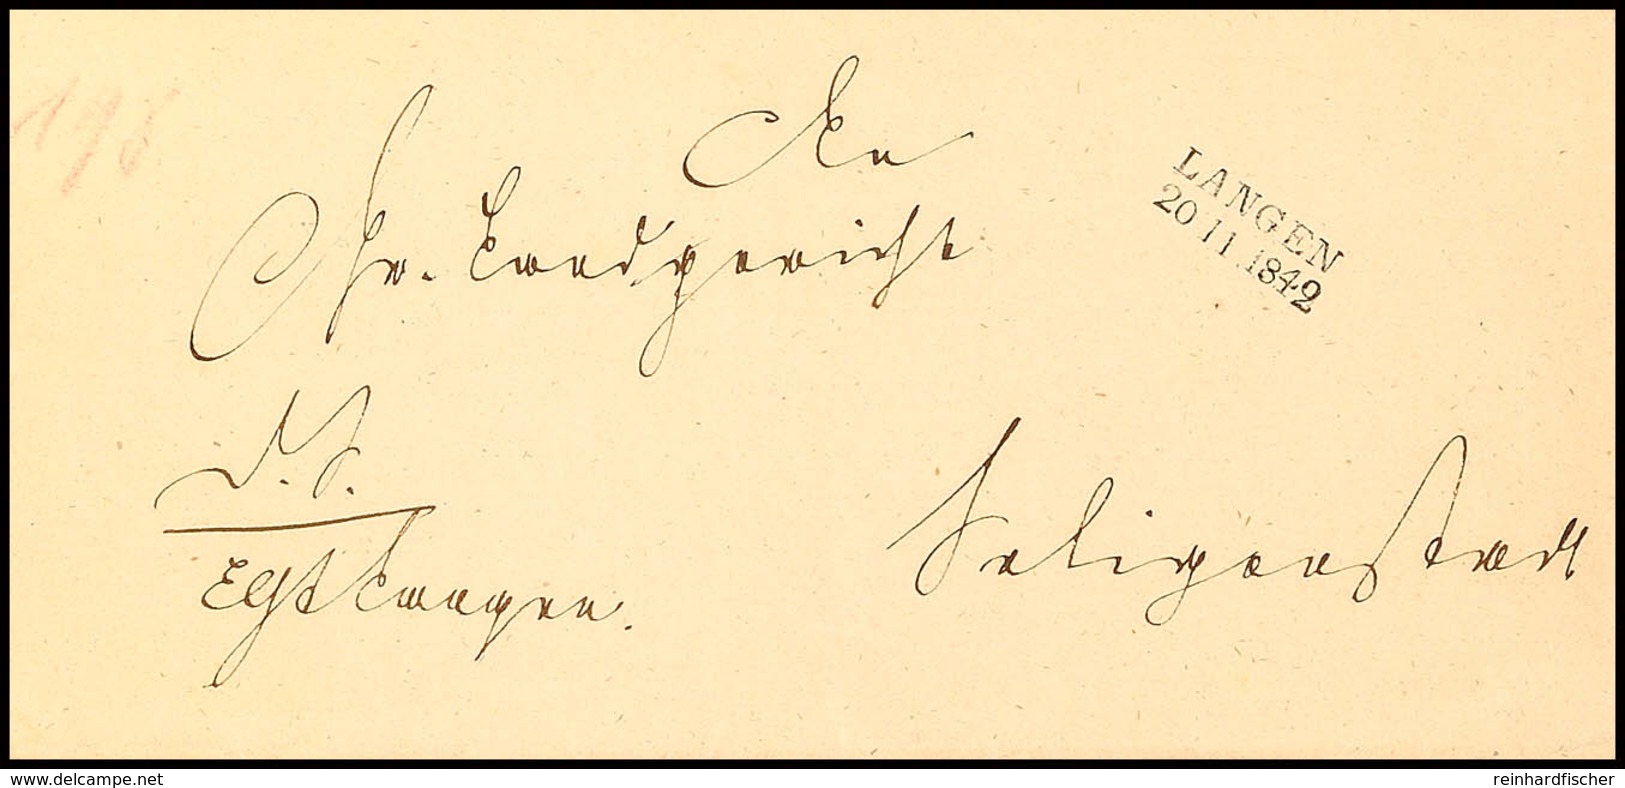 196
An
Gr. Landgericht
LANGEN
20 11. 1842
D. S.
Lgst Langen.
Seligenstadt
www.delcampe.net
reinhardfischer